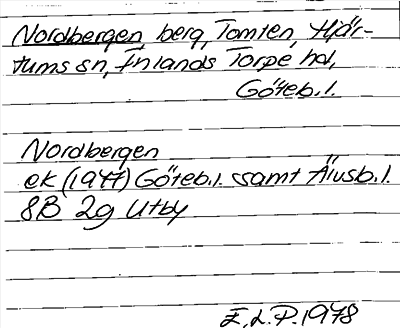 Nordbergen, berg, Tomten, Hjär-
tums sn, Inlands Torpe hd,
Göteb.l.
Nordbergen
ek (1977) Göteb.l. samt Älvsb.l.
8B 2g Utby
E.L.P. 1978